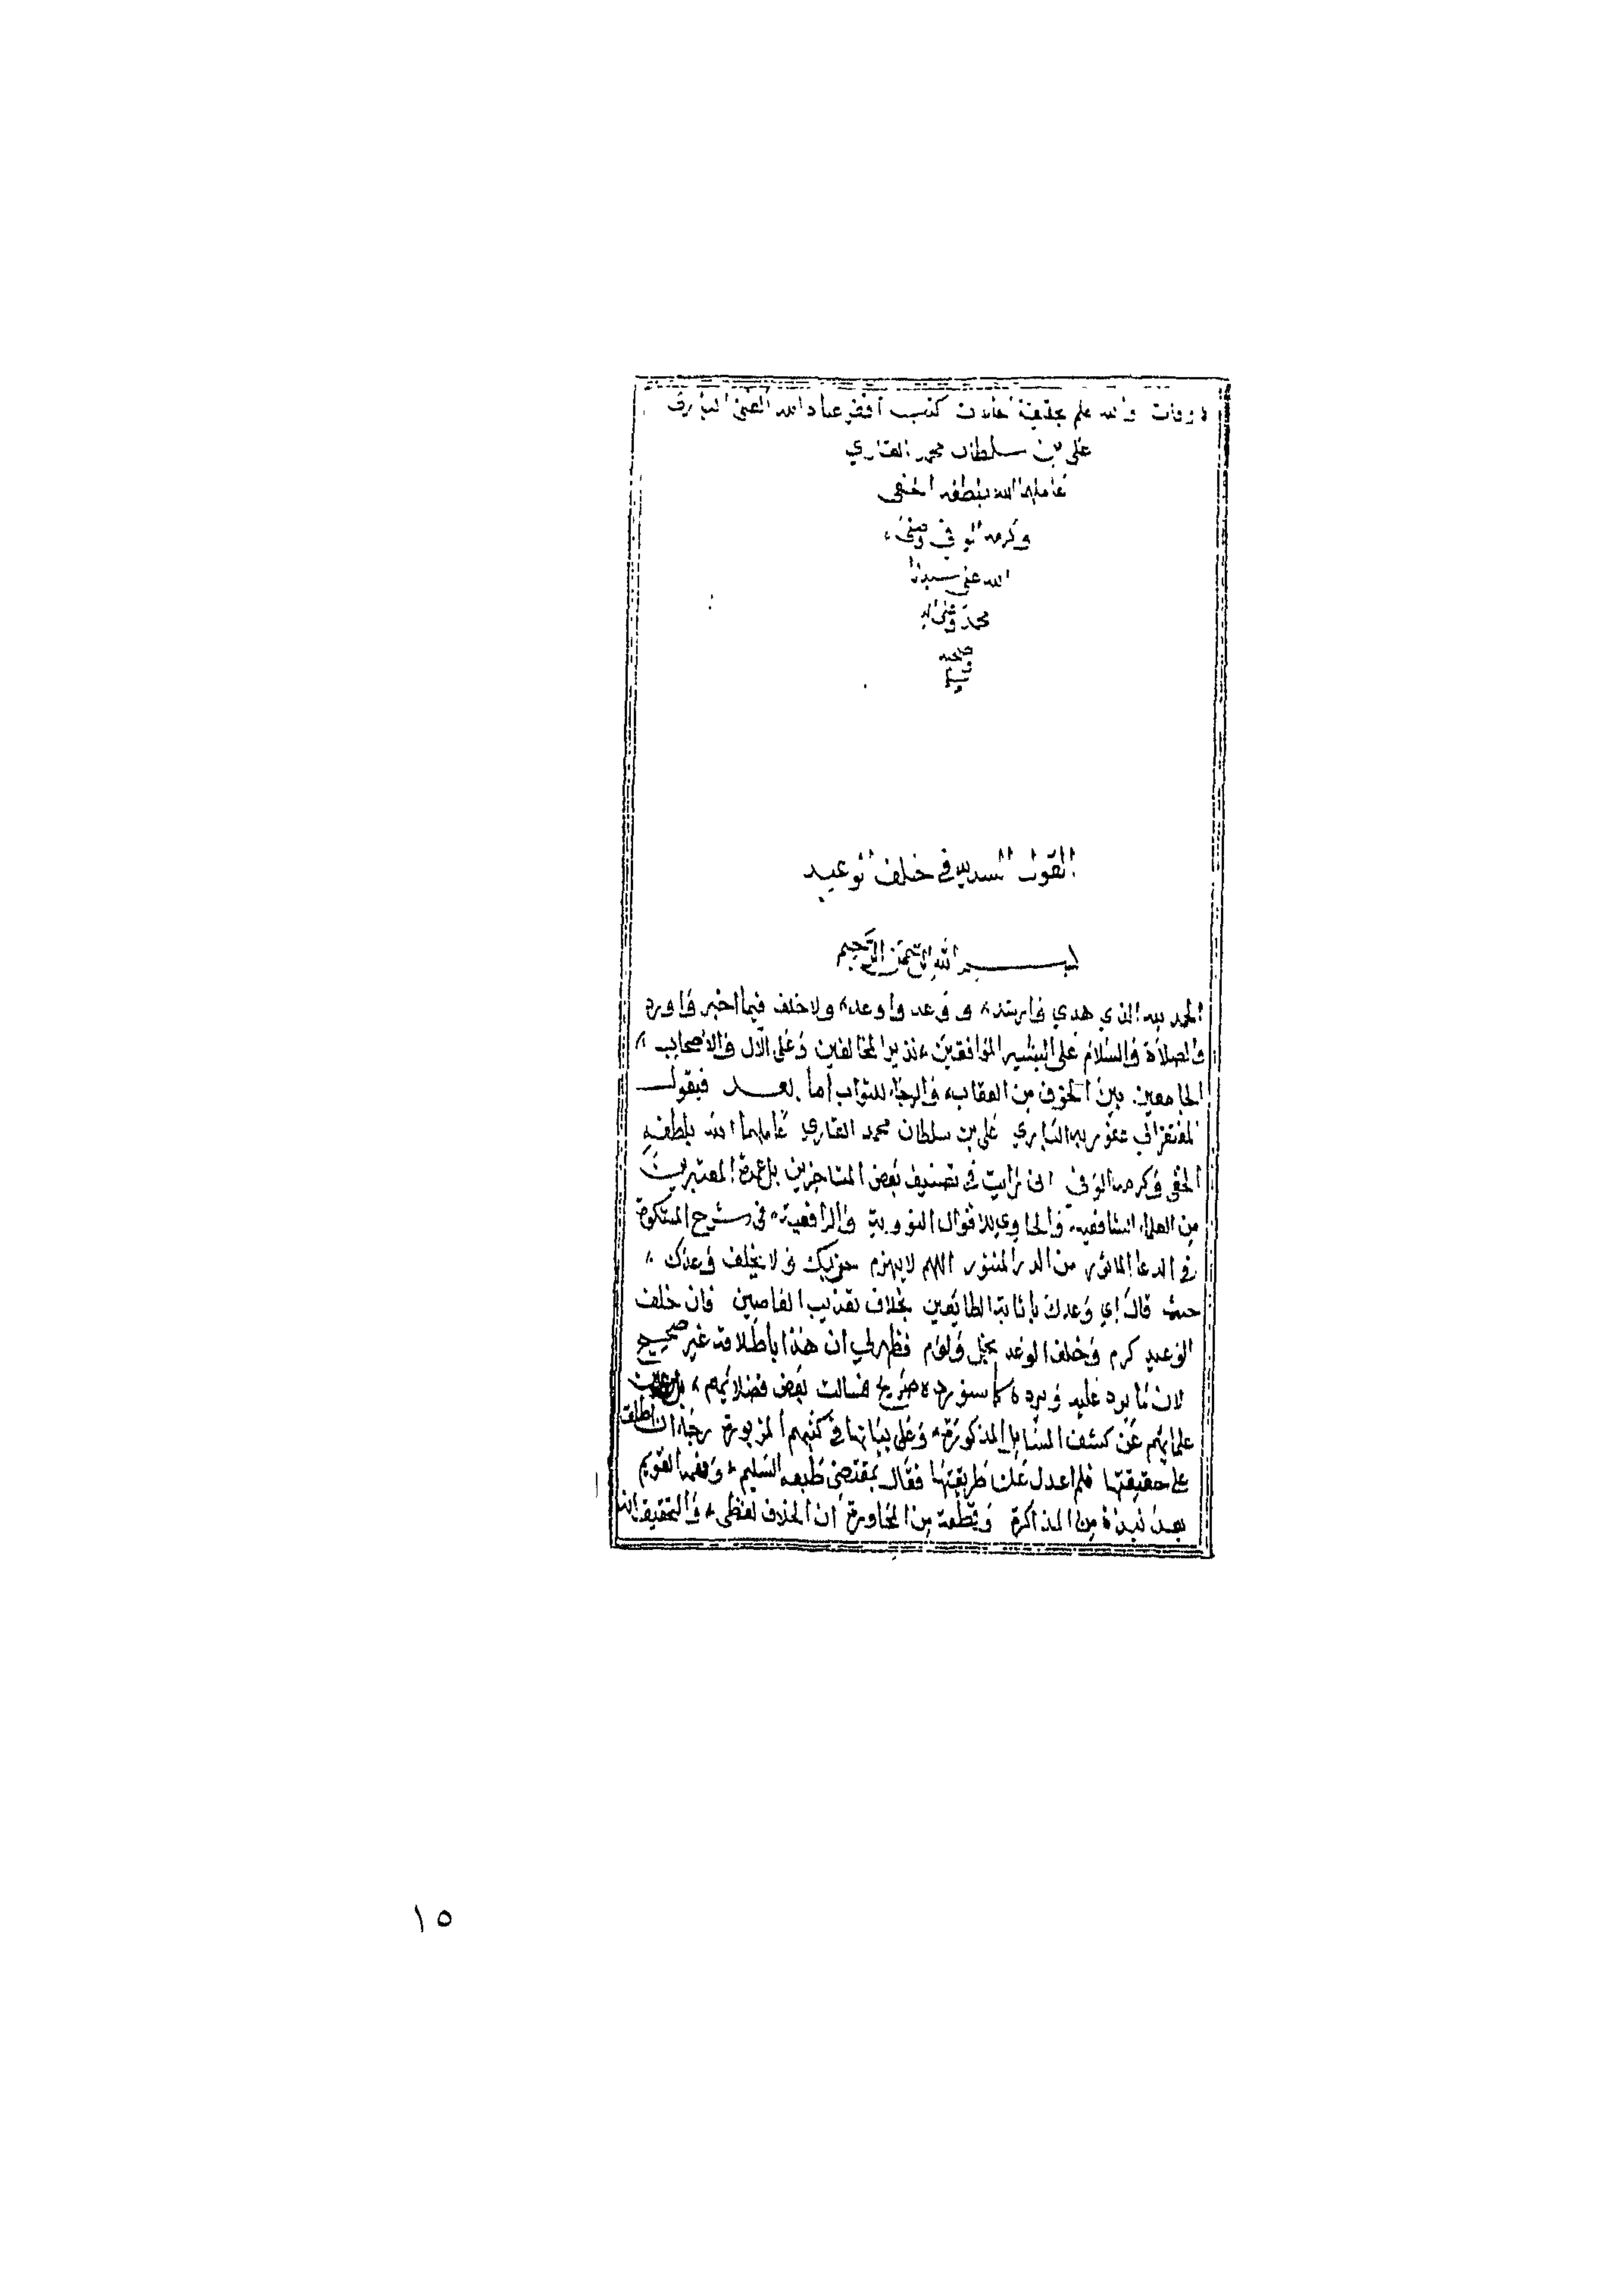 والله اعلم بحقيقة الحالات كتب افقر عباد الله الغني الباري
علي بن سلطان محمد القاري
عاملهما الله بلطفه الخفي
وكرمه الوفي وصلى
الله على سيدنا
محمد وعلى اله
وصحبه
وسلم
القول السديد في خلف الوعيد
بسم الله الرحمن الرحيم
الحمد لله الذي هدي وارشد، ووعد واوعد، ولا خلف فيما اخبر واورد
والصلاة والسلام على البشير الموافقين، نذير المخالفين وعلى الال والاصحاب،
الجامعين بين الخوف من العقاب، والرجاء للثواب اما بعد فيقول
المفتقر الى عفو ربه الباري علي بن سلطان محمد القاري عاملهما الله بلطفه
الخفي وكرمه الوفي اني رايت في تصنيف بعض المتاخرين بل عمدة المعتبرين
من العلماء الشافعيه، والحاوي للاقوال النووية والرافعية، في شرح المشكوة
في الدعا الماثور من الدر المنثور اللهم لا يهزم جندك ولا يخلف وعدك،
حيث قال اي وعدك باثابة الطائعين بخلاف تعذيب العاصين فان خلف
الوعيد كرم وخلف الوعد بخل ولوم فظهر لي ان هذا باطلاقه غير صحيح
لان ما يرد عليه ويرده كما سنورده صريح فسالت بعض فضلائهم،
علمائهم عن كشف المسايل المذكورة، وعلى بيانها في كتبهم المزبورة رجاء ان اطلع
على حقيقتها فلم اعدل عن طريقتها فقال بمقتضى طبعه السليم، وفهمه القويم
بعد نبذة من المذاكرة وقطعة من المحاورة ان الخلاف لفظي، والتحقيق انه
١٥